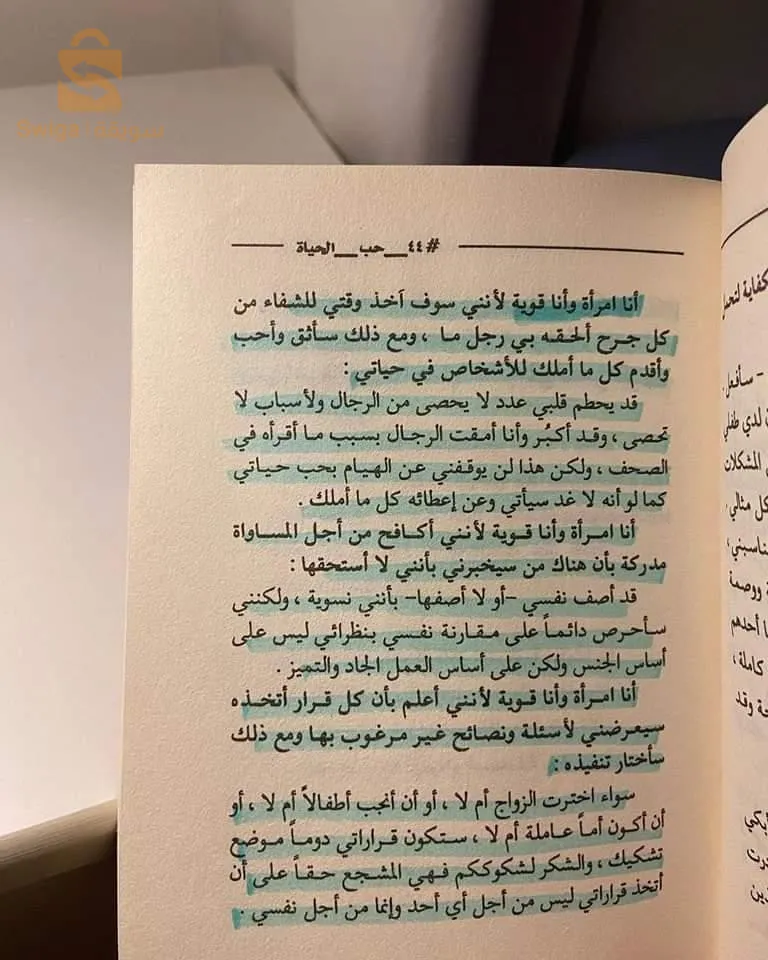 Swiga سويقة
#٤٤__حب__الحياة
أنا امرأة وأنا قوية لأنني سوف آخذ وقتي للشفاء من
كل جرح ألحقه بي رجل ما ، ومع ذلك سأثق وأحب
وأقدم كل ما أملك للأشخاص في حياتي :
قد يحطم قلبي عدد لا يحصى من الرجال ولأسباب لا
تحصى ، وقد أكبُر وأنا أمقت الرجال بسبب ما أقرأه في
الصحف ، ولكن هذا لن يوقفني عن الهيام بحب حياتي
كما لو أنه لا غد سيأتي وعن إعطائه كل ما أملك .
أنا امرأة وأنا قوية لأنني أكافح من أجل المساواة
مدركة بأن هناك من سيخبرني بأنني لا أستحقها :
قد أصف نفسي –أو لا أصفها– بأنني نسوية ، ولكنني
سأحرص دائماً على مقارنة نفسي بنظرائي ليس على
أساس الجنس ولكن على أساس العمل الجاد والتميز .
أنا امرأة وأنا قوية لأنني أعلم بأن كل قرار أتخذه
سيعرضني لأسئلة ونصائح غير مرغوب بها ومع ذلك
سأختار تنفيذه :
سواء اخترت الزواج أم لا ، أو أن أنجب أطفالاً أم لا ، أو
أن أكون أماً عاملة أم لا ، ستكون قراراتي دوماً موضع
تشكيك ، والشكر لشكوككم فهي المشجع حقاً على أن
أتخذ قراراتي ليس من أجل أي أحد وإنما من أجل نفسي .
كفاية لتحمل
– سأفعل
لدي طفلي
المشكلات
كل مثالي .
ووصمة
أحدهم
كاملة ،
وقد